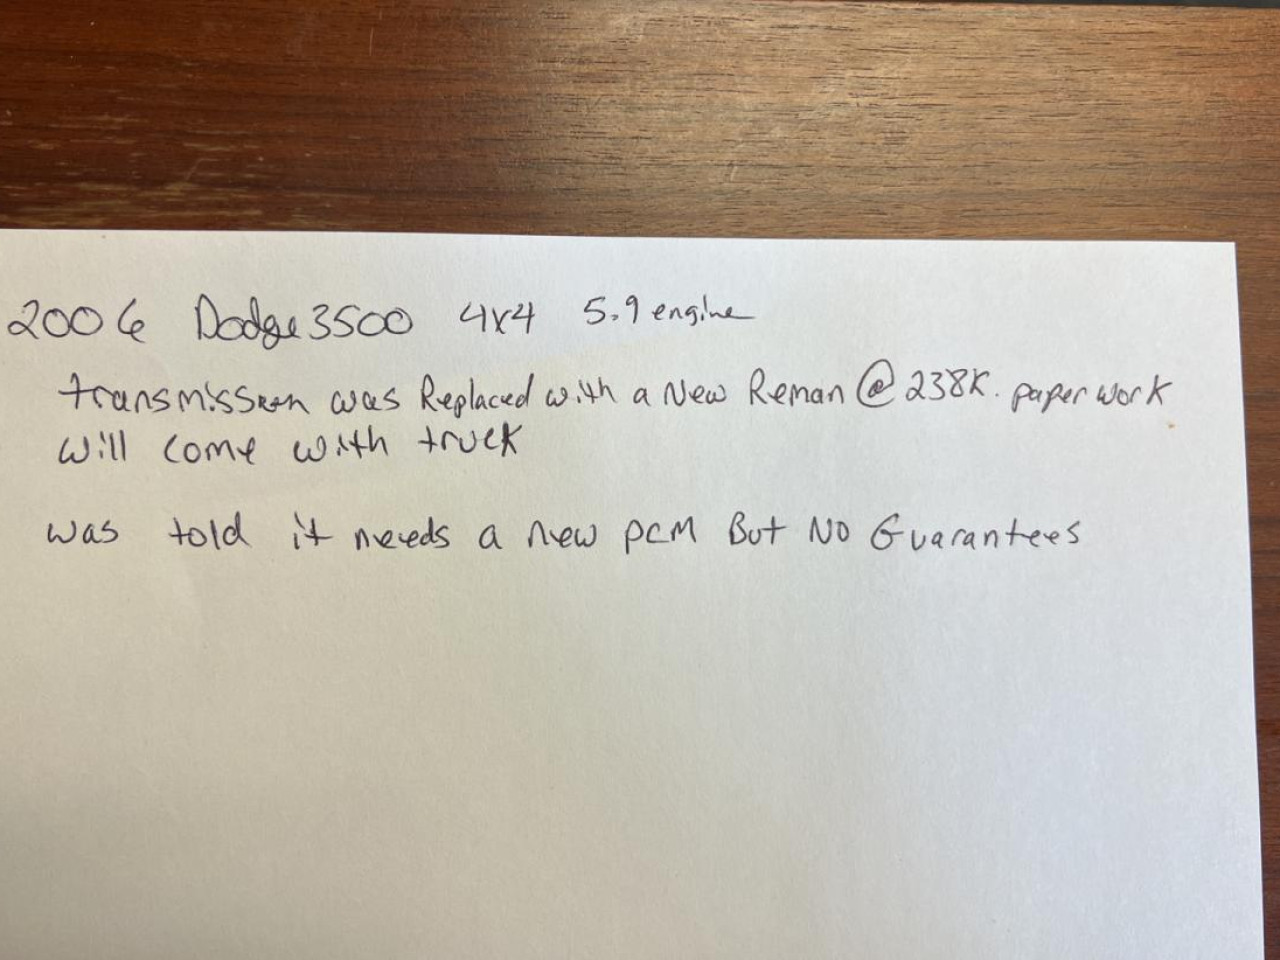 2006 Dodge 3500 4x4 5.9 engine
transmission was Replaced with a New Reman @ 238K. paper work
will come with truck
was told it needs a new PCM But No Guarantees